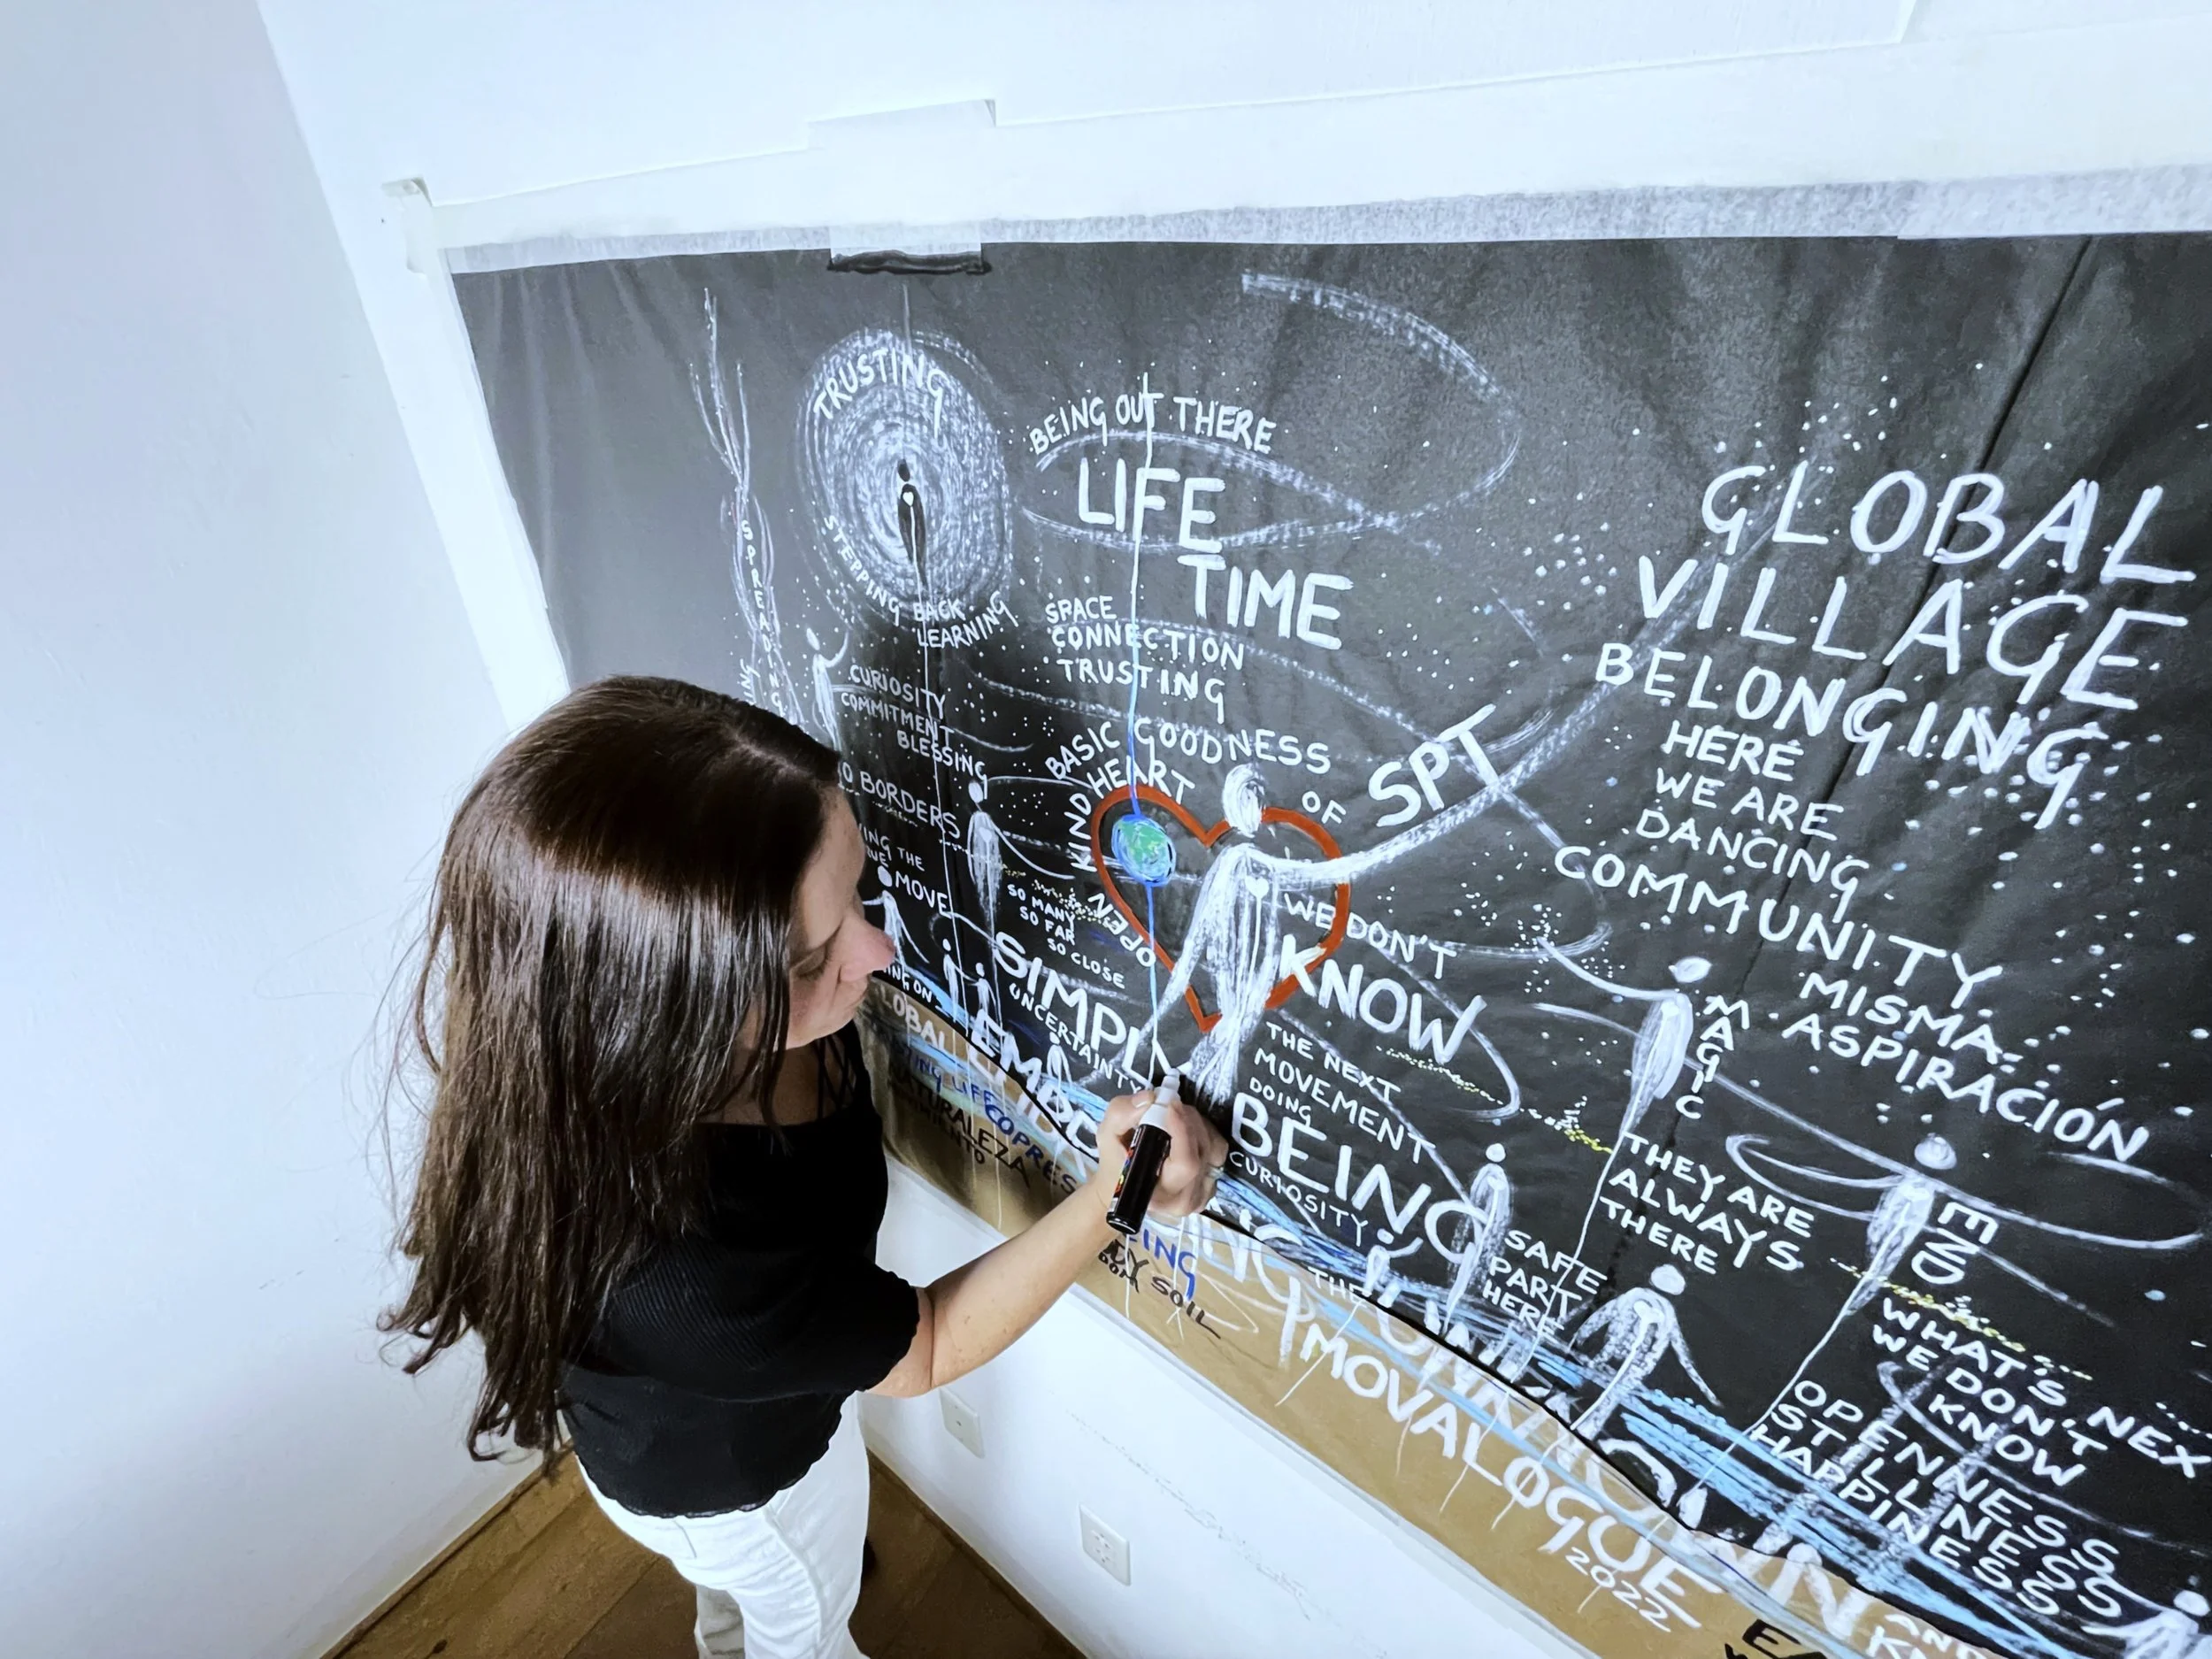 TRUSTING
STEPPING BACK
LEARNING
SPREADING
BEING OUT THERE
LIFE
TIME
SPACE
CONNECTION
TRUSTING
CURIOSITY
COMMITMENT
BLESSING
BORDERS
THE
MOVE
SO MANY
SO FAR
SO CLOSE
SIMPLY
UNCERTAINTY
BASIC GOODNESS
OF
KIND HEART
OPEN
SPT
WE DON'T
KNOW
THE NEXT
MOVEMENT
DOING
BEING
CURIOSITY
GLOBAL
VILLAGE
BELONGING
HERE
WE ARE
DANCING
COMMUNITY
MISMA
ASPIRACIÓN
MAGIC
THEY ARE
ALWAYS
THERE
SAFE
PART
HERE
END
WHAT'S NEX
WE DON'T
KNOW
OPENNESS
STILLNESS
HAPPINESS
ON
LIFE
NATURALEZA
THE
SOIL
MOVALOGUE
2022
AND